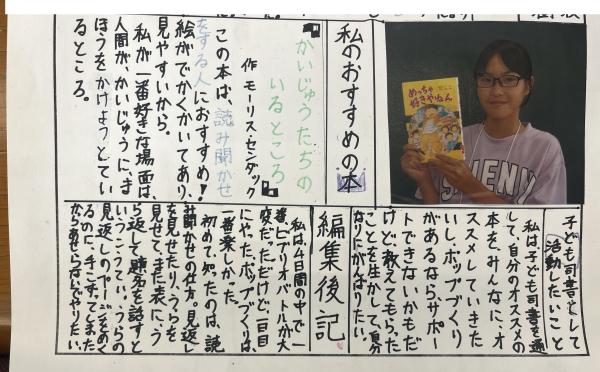 めっちゃ
好きやねん
私のおすすめの本
かいじゅうたちの
いるところ
作 モーリス・センダック
この本は、読み聞かせ
をする人におすすめ!
絵がでかくかいてあり、
見やすいから。
私が一番好きな場面は、
人間が、かいじゅうに、ま
ほうをかけようとてい
るところ。
子ども司書として
活動したいこと
私は、子ども司書を通
して、自分のオススメの
本をみんなに、オ
ススメしていきた
いし、ポップづくり
があるなら、サポー
トできないかもだ
けど、教えてもらった
ことを生かして、自分
なりにがんばりたい。
編集後記
私は、4日間の中で一
番、ビブリオバトルが大
変だっただけど、二日目
にやった、ポップづくりは、
一番楽しかった。
初めて、知ったのは、読
み聞かせの仕方。見返し
を見せたり、うらを
見せて、また表に、う
ら返して、題名を話すと
いうこうてい。うらの
見返しのページをめく
るのに、手こずってしまた
からあせらないでやりたい。